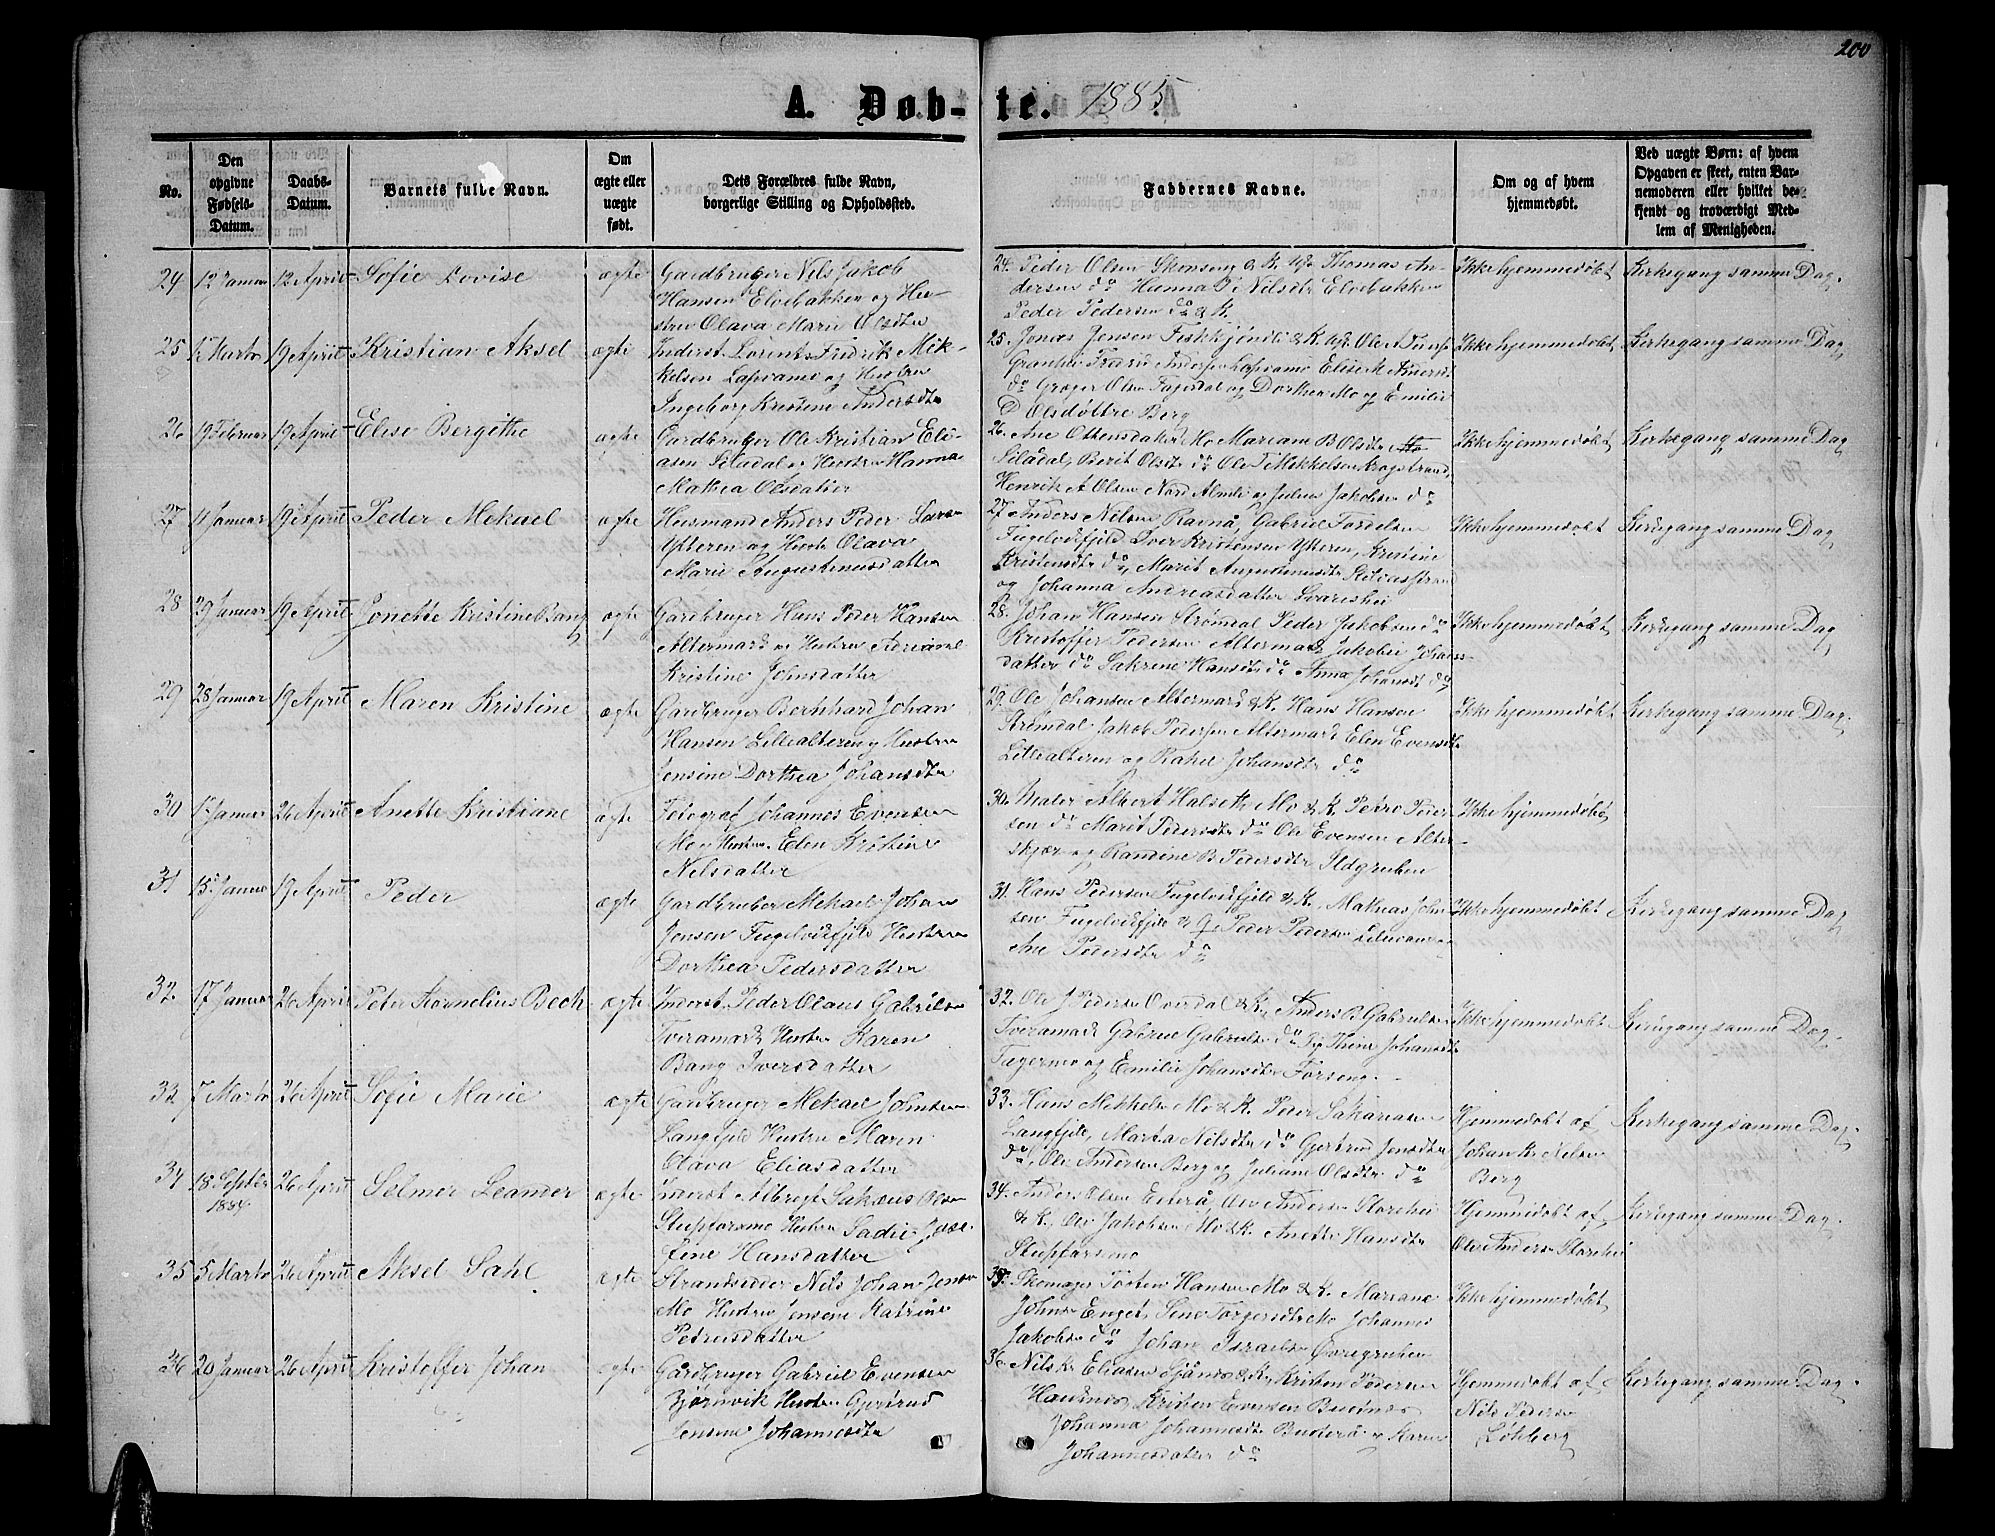 200
A. Døb-te. 1885
No.
Den opgivne Fødsels-Datum.
Daabs-Datum.
Barnets fulde Navn.
Om ægte eller uægte født.
Dets Forældres fulde Navn, borgerlige Stilling og Opholdssted.
Faddernes Navne.
Om og af hvem hjemmedøbt.
Ved uægte Børn: af hvem Opgaven er skeet, enten Barnemoderen eller hvilket bekjendt og troværdigt Medlem af Menigheden.
24 12 Januar 12 April Sofie Lovise ægte Gardbruger Nils Jakob
Hansen Elvebakken og Hu-
stru Olava Marie Olsdtr
24. Peder Olsen Skonseng & K. Thomas An-
dersen do Hanna Nilsdtr Elvebakken
Peder Pedersen do & K.
Ikke hjemmedøbt Kirkegang samme Dag.
25 Marts 19 April Kristian Aksel ægte Inderst Lorents Fredrik Mik-
kelsen Lapvamo og Hustru
Ingeborg Kristine Andersdtr
25. Jonas Jensen & K. Ole
Elise M Andersd
do Olsen og Dorthea Mo og Emilie
D Olsdøttre Berg
Ikke hjemmedøbt Kirkegang samme Dag
26 19 Februar 19 April Elise Bergithe ægte Gardbruger Ole Kristian Eli-
asen Siladal og Hustru Hanna
Mathea Olsdatter
26. Ane Mo Mariane B Olsdtr
Siladal, Berit Olsdtr do Ole T Mikkelsen
Henrik A Olsen Nord Almli og Julius Jakobsen do
Ikke hjemmedøbt Kirkegang samme Dag
27 11 Januar 19 April Peder Mekael ægte Husmand Anders Peder Larsen
Ytteren og Hustr Olava
Marie Augustinusdatter
27. Anders Nilsen Ravnå, Gabriel
Fugelvedfjeld Iver Kristensen Ytteren, Kristine
Kristensdtr do, Marit Augustinusdtr
og Johanna Andreasdatter
Ikke hjemmedøbt Kirkegang samme Dag
28 29 Januar 19 April Jonette Kristine Bang ægte Gardbruger Hans Peder Hansen
Altermark og Hustru Adriane
Kristine Johnsdatter
28. Johan Hansen Strømdal Peder Jakobsen do
Kristoffer Pedersen Altermark Jakobie Johans-
datter do Sakrine Hansdtr do Anna Johansdt do
Ikke hjemmedøbt Kirkegang samme Dag
29 28 Januar 19 April Maren Kristine ægte Gardbruger Bernhard Johan
Hansen Lillealteren og Hustru
Jensine Dorthea Johansdtr
29. Ole Johansen Altermark & K. Hans Hansen
Strømdal Jakob Pedersen Altermark Elen Evensdtr
Lillealteren og Rakel Johansdtr do
Ikke hjemmedøbt Kirkegang samme Dag.
30 1 Januar 26 April Anette Kristiane ægte Fotograf Johannes Evensen
Mo og Hustru Elen Kristine
Nilsdatter
30. Maler Albert Halseth Mo & K. Petro Peder-
sen do Marit Pedersdtr do Ole Evensen Alter-
skjær og Randine B Pedersdtr Ildgruben
Ikke hjemmedøbt
31 15 Januar 19 April Peder ægte Gardbruger Mekael Johan
Jensen Fugelvedfjeld Hustru
Dorthea Pedersdatter
31. Hans Pedersen Fugelvedfjeld & K. Mathias John
sen Fugelvedfjeld & Peder Pedersen
Ane Pedersdtr do
Ikke hjemmedøbt Kirkegang samme Dag
32. 17 Januar 26 April Peter Kornelius Bech ægte Inderst Peder Olaus Gabrielsen
Tveramark Hustru Karen
Bang Iversdatter
32. Ole J Pedersen & K, Anders B Gabrielsen
Tveramark Gabriel Gabrielsen do Johansdtr
Fagermo og Emilie Johansdtr Forseng.
Ikke hjemmedøbt Kirkegang samme Dag.
33 7 Marts 26 April Sofie Marie ægte Gardbruger Mekael Johnsen
Langfjeld Hustru Maren
Olava Eliasdatter
33. Hans Mikkelsen Mo & K. Peder Sakariasen
Langfjeld, Marta Nilsdtr do Gjertrud Jensdtr
do, Ole Andersen Berg og Juliane Olsdtr do
Hjemmedøbt af
Johan K. Nilsen
Berg
Kirkegang samme Dag.
34 18 Septbr 1884 26 April Selmer Leander ægte Inderst Albregt Sakæus Olsen
Stupforsmo Hustru Sadie Jose-
fine Hansdatter
34. Anders Olsen Eiterå, Ole Andersen Storehei
& K, Ole Jakobsen Mo & K. Anette Hansdtr
Stupforsmo
Hjemmedøbt af
Ole Andersen Storehei
Kirkegang samme Dag.
35 5 Marts 26 April Aksel Sahl ægte Strandsidder Nils Johan Jensen
Mo Hustru Jensine Katrine
Petersdatter
35. Skomager Torsten Hansen Mo & K. Mariane
Johns Enget, Sine Torgersdtr Mo Johannes
Jakobsen do Johan Israelsen Øvregruben
Ikke hjemmedøbt
36 20 Januar 26 April Kristoffer Johan ægte Gårdbruger Gabriel Evensen
Bjørnvik Hustru Gjertrud
Jensine Johannesdtr
36. Nils K. Eliasen & K, Kristen Pedersen
Hauknes, Kristen Evensen
Johanna Johannesdtr og Karen
Johannesdatter do
Hjemmedøbt af
Nils Pedersen
Løkberg
Kirkegang samme Dag.